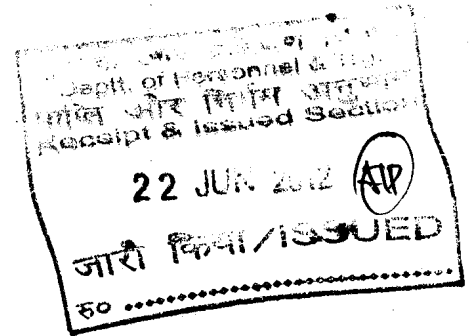 Deptt. of Personnel & Trg.
प्राप्ति और निर्गम अनुभाग
Receipt & Issued Section
22 JUN 2012 ATP
जारी किया/ISSUED
ह०